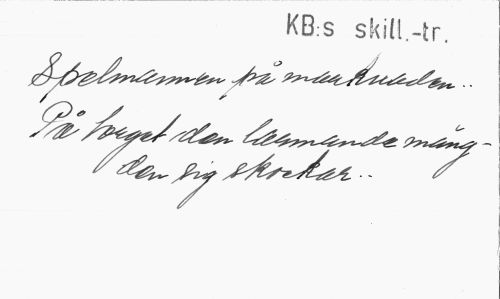 KB:s skill.-tr.
Spelmannen på marknaden..
På torget den larmande mäng-
den sig skockar..